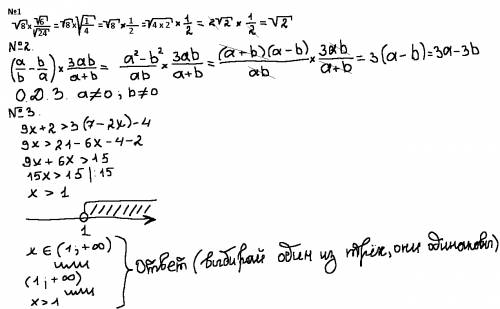 №1
√8 × √6/√24 = √8 × √(1/4) = √8 × 1/2 = √(4×2) × 1/2 = 2√2 × 1/2 = √2
№2.
(a/b - b/a) × 3ab/(a+b) = (a²-b²)/ab × 3ab/(a+b) = (a+b)(a-b)/ab × 3ab/(a+b) = 3(a-b) = 3a-3b
О.Д.З. a≠0; b≠0
№3.
9x+2>3(7-2x)-4
9x>21-6x-4-2
9x+6x>15
15x>15|:15
x>1
1
x∈(1;+∞)
или
(1;+∞)
или
x>1
Ответ (выбирай один из трёх, они одинаковы)